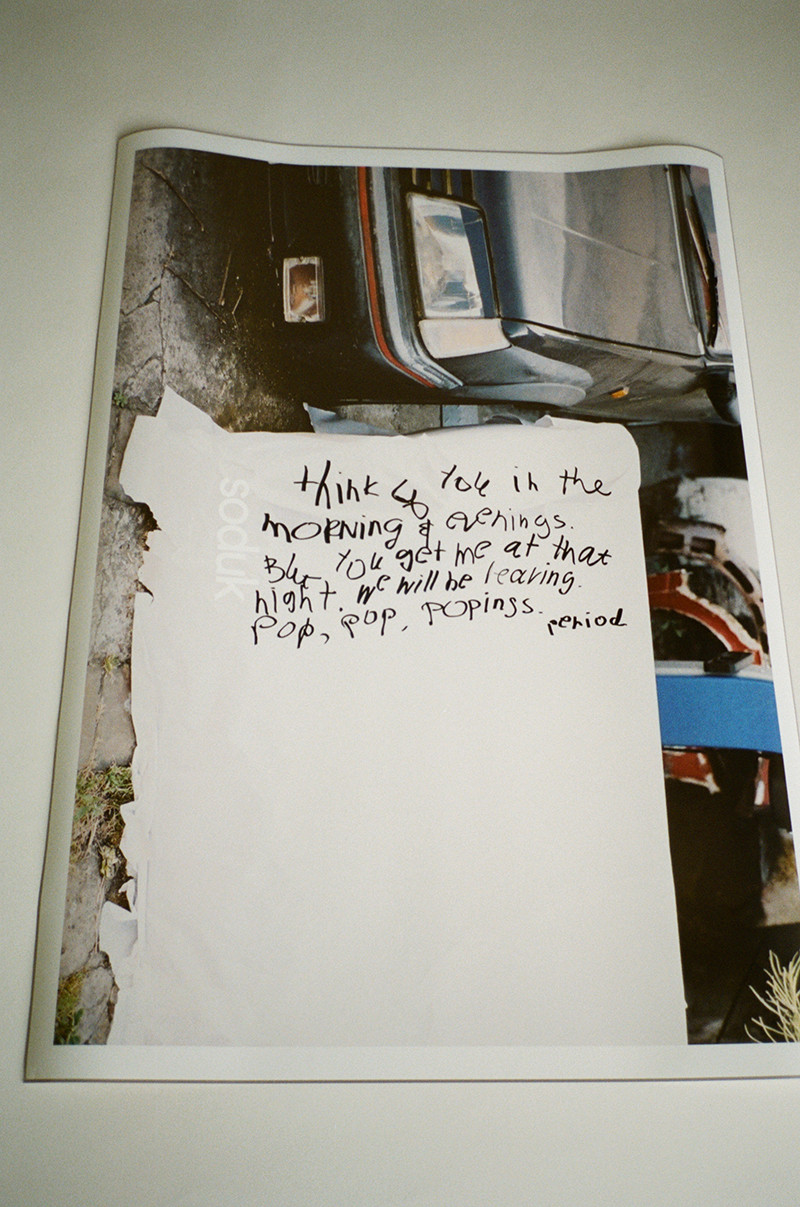 think of you in the
morning & evenings.
But you get me at that
night. we will be leaving.
pop, pop, popings. period
soduk